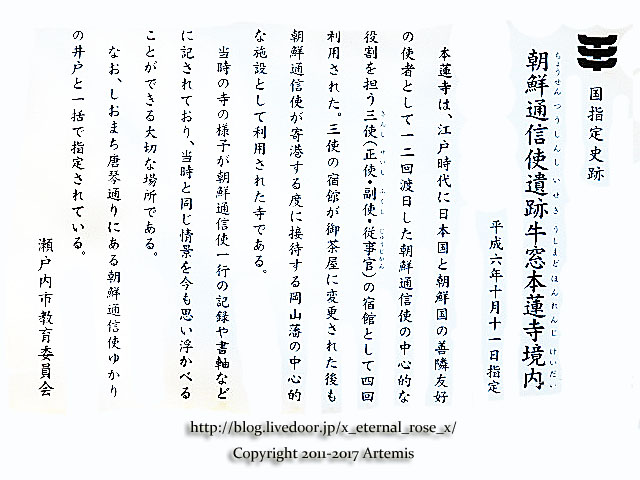 国指定史跡
朝鮮通信使遺跡牛窓本蓮寺境内
ちょうせん つうしんし いせき うしまど ほんれんじ けいだい
平成六年十月十一日指定
本蓮寺は、江戸時代に日本国と朝鮮国の善隣友好
の使者として一二回渡日した朝鮮通信使の中心的な
役割を担う三使(正使・副使・従事官)の宿館として四回
さんし せいし ふくし じゅうじかん
利用された。三使の宿館が御茶屋に変更された後も
朝鮮通信使が寄港する度に接待する岡山藩の中心的
な施設として利用された寺である。
当時の寺の様子が朝鮮通信使一行の記録や書軸など
に記されており、当時と同じ情景を今も思い浮かべる
ことができる大切な場所である。
なお、しおまち唐琴通りにある朝鮮通信使ゆかり
の井戸と一括で指定されている。
瀬戸内市教育委員会
http://blog.livedoor.jp/x_eternal_rose_x/
Copyright 2011-2017 Artemis